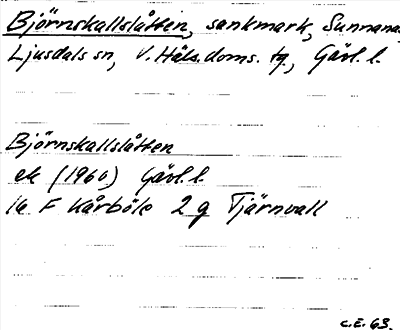 Björnskallslåtten, sankmark, Sunnanå,
Ljusdals sn, V. Häls. doms. tg, Gävl. l.
Björnskallslåtten
ek (1960) Gävl. l.
16 F Kårböle 2 g Tjärnvall
C.E. 63.